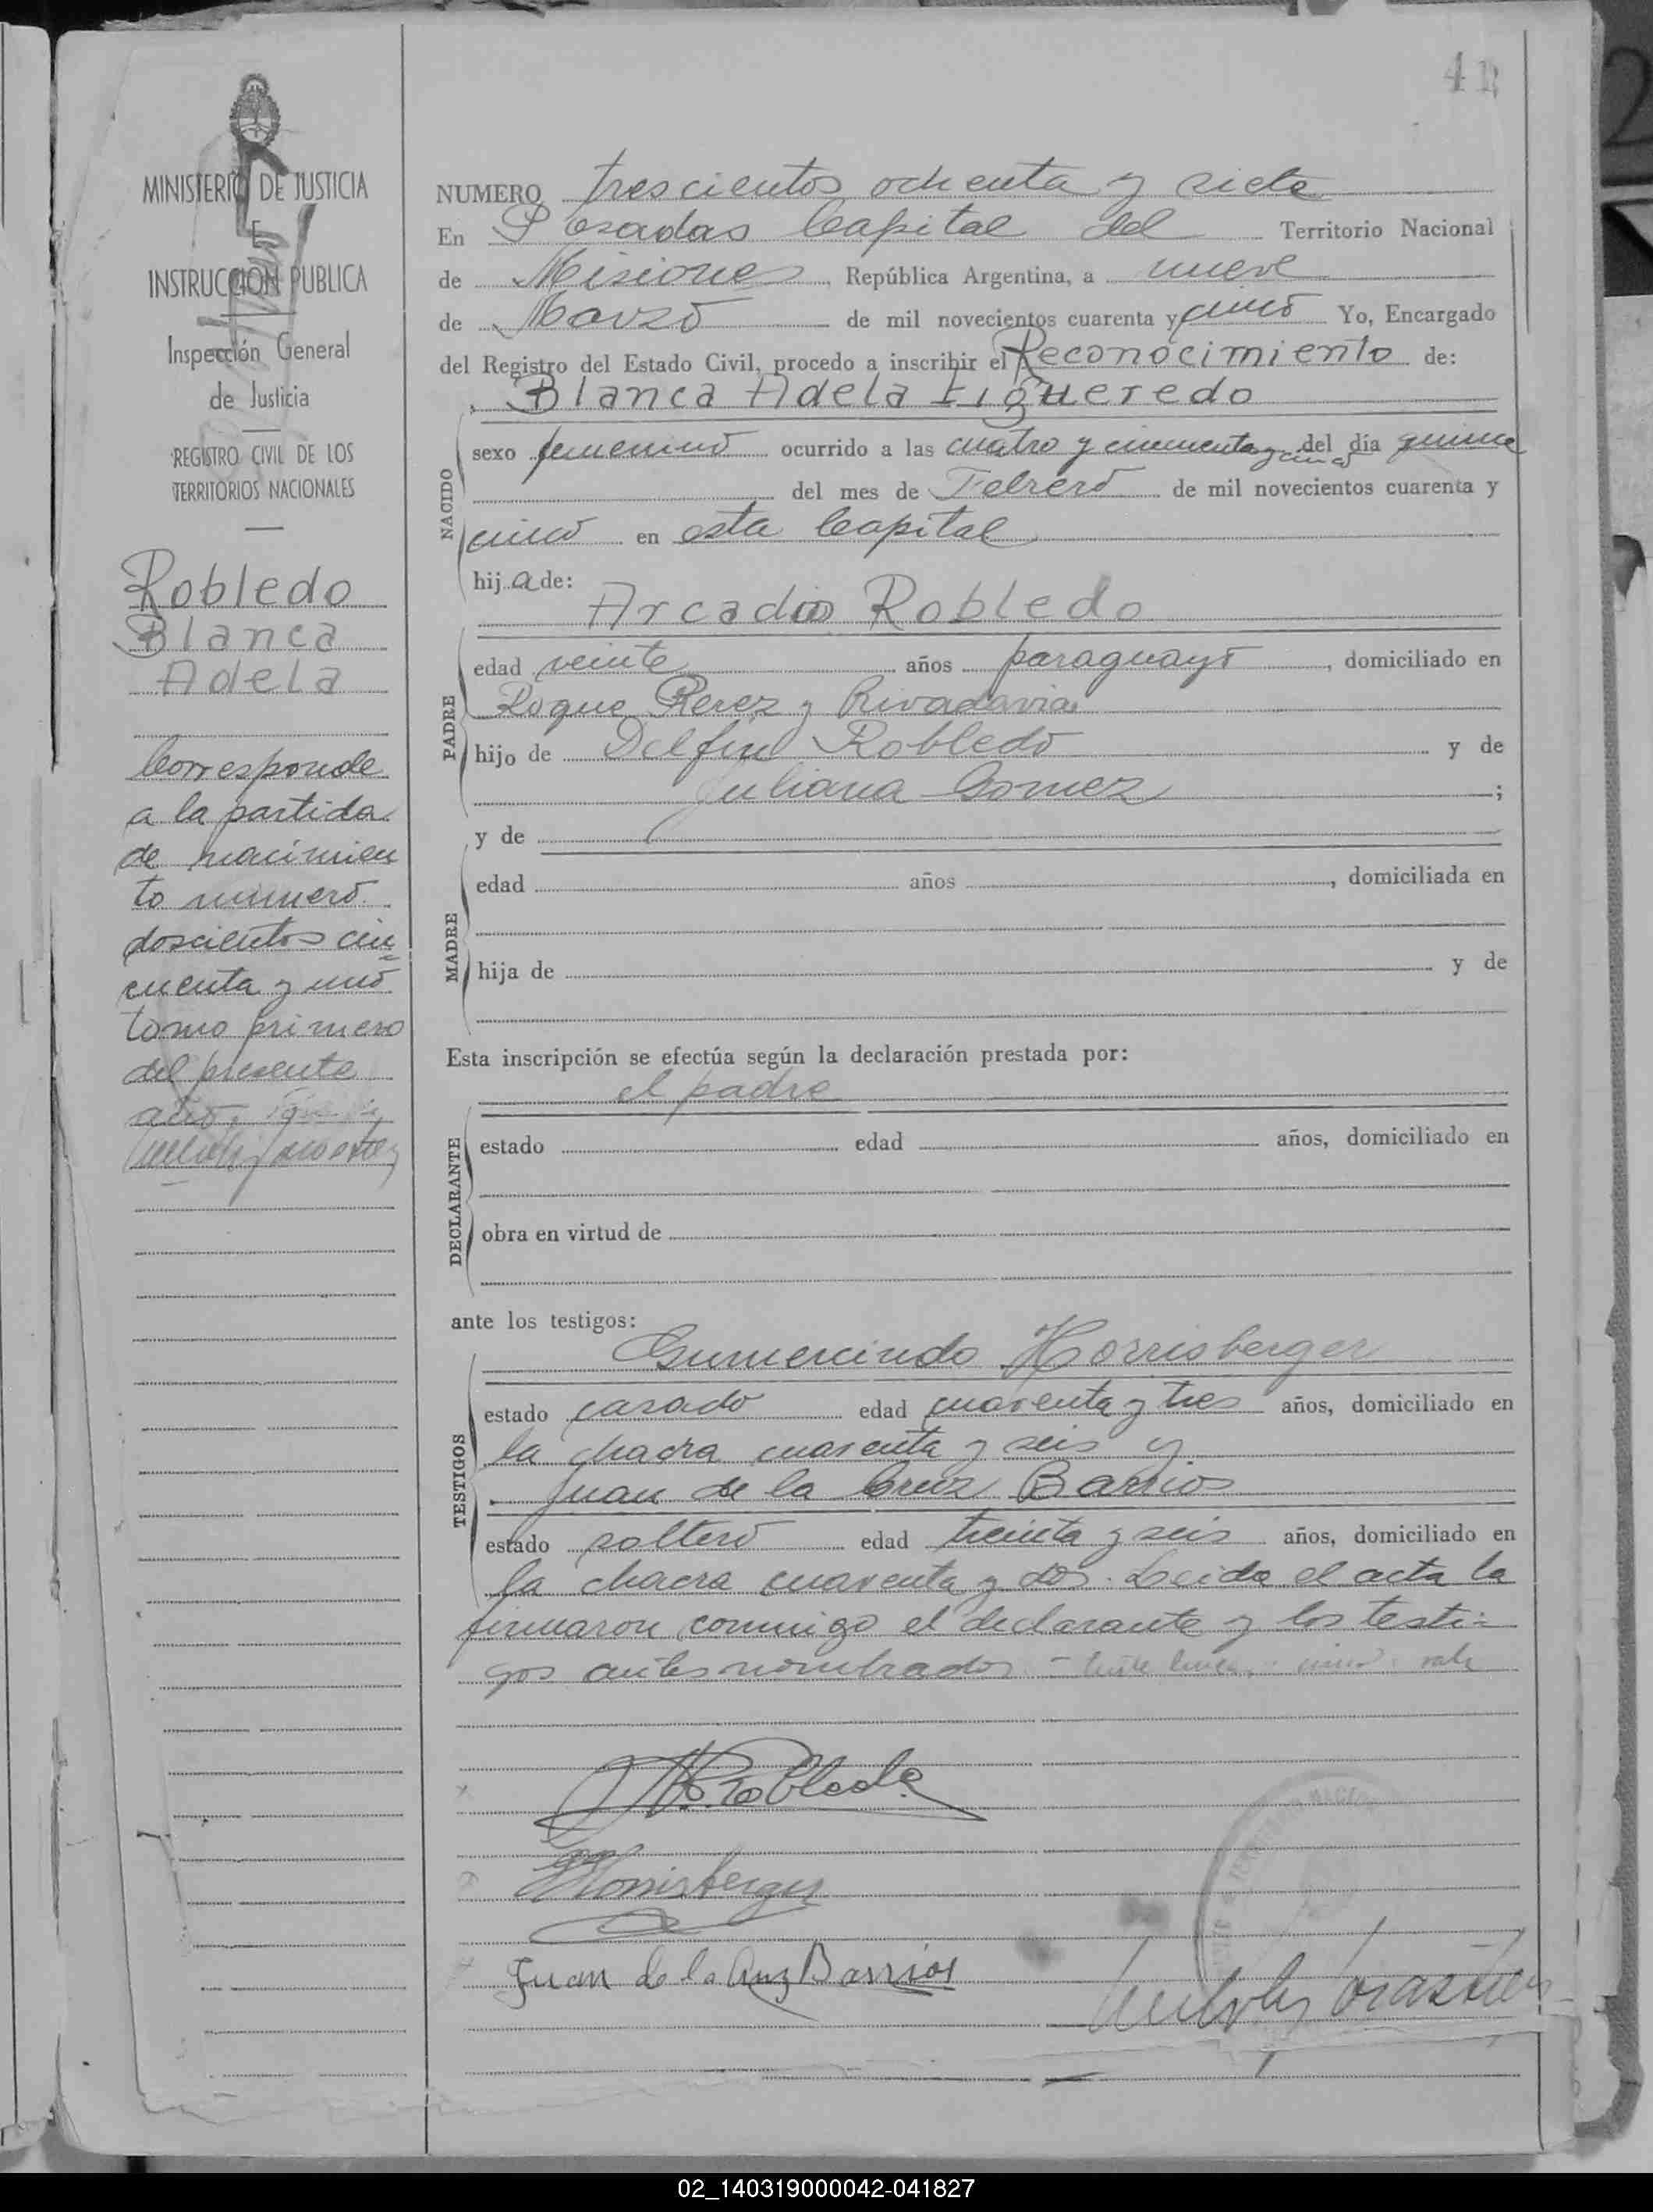 MINISTERIO DE JUSTICIA
E
INSTRUCCION PUBLICA
Inspección General
de Justicia
REGISTRO CIVIL DE LOS
TERRITORIOS NACIONALES
Robledo
Blanca
Adela
Corresponde
a la partida
de nacimien
to numero
doscientos cin
cuenta y uno
tomo primero
del presente
año.
NUMERO trescientos ochenta y siete
En Posadas Capital del Territorio Nacional
de Misiones, República Argentina, a nueve
de Marzo de mil novecientos cuarenta y cinco Yo, Encargado
del Registro del Estado Civil, procedo a inscribir el Reconocimiento de:
Blanca Adela Figueredo
NACIDO
sexo femenino ocurrido a las cuatro y cincuenta y cinco del día quince
del mes de Febrero de mil novecientos cuarenta y
cinco en esta Capital
hija de:
Arcadio Robledo
PADRE
edad veinte años paraguayo, domiciliado en
Roque Perez y Rivadavia
hijo de Delfin Robledo y de
Juliana Gomez;
y de
MADRE
edad años, domiciliada en
hija de y de
Esta inscripción se efectúa según la declaración prestada por:
el padre
DECLARANTE
estado edad años, domiciliado en
obra en virtud de
ante los testigos:
Gumercindo Horrisberger
TESTIGOS
estado casado edad cuarenta y tres años, domiciliado en
la chacra cuarenta y seis y
Juan de la Cruz Barrios
estado soltero edad treinta y seis años, domiciliado en
la chacra cuarenta y dos. Leida el acta la
firmaron conmigo el declarante y los testi-
gos antes nombrados - Entre linea: cinco: vale
A. Robledo
Horrisberger
Juan de la Cruz Barrios
02_140319000042-041827